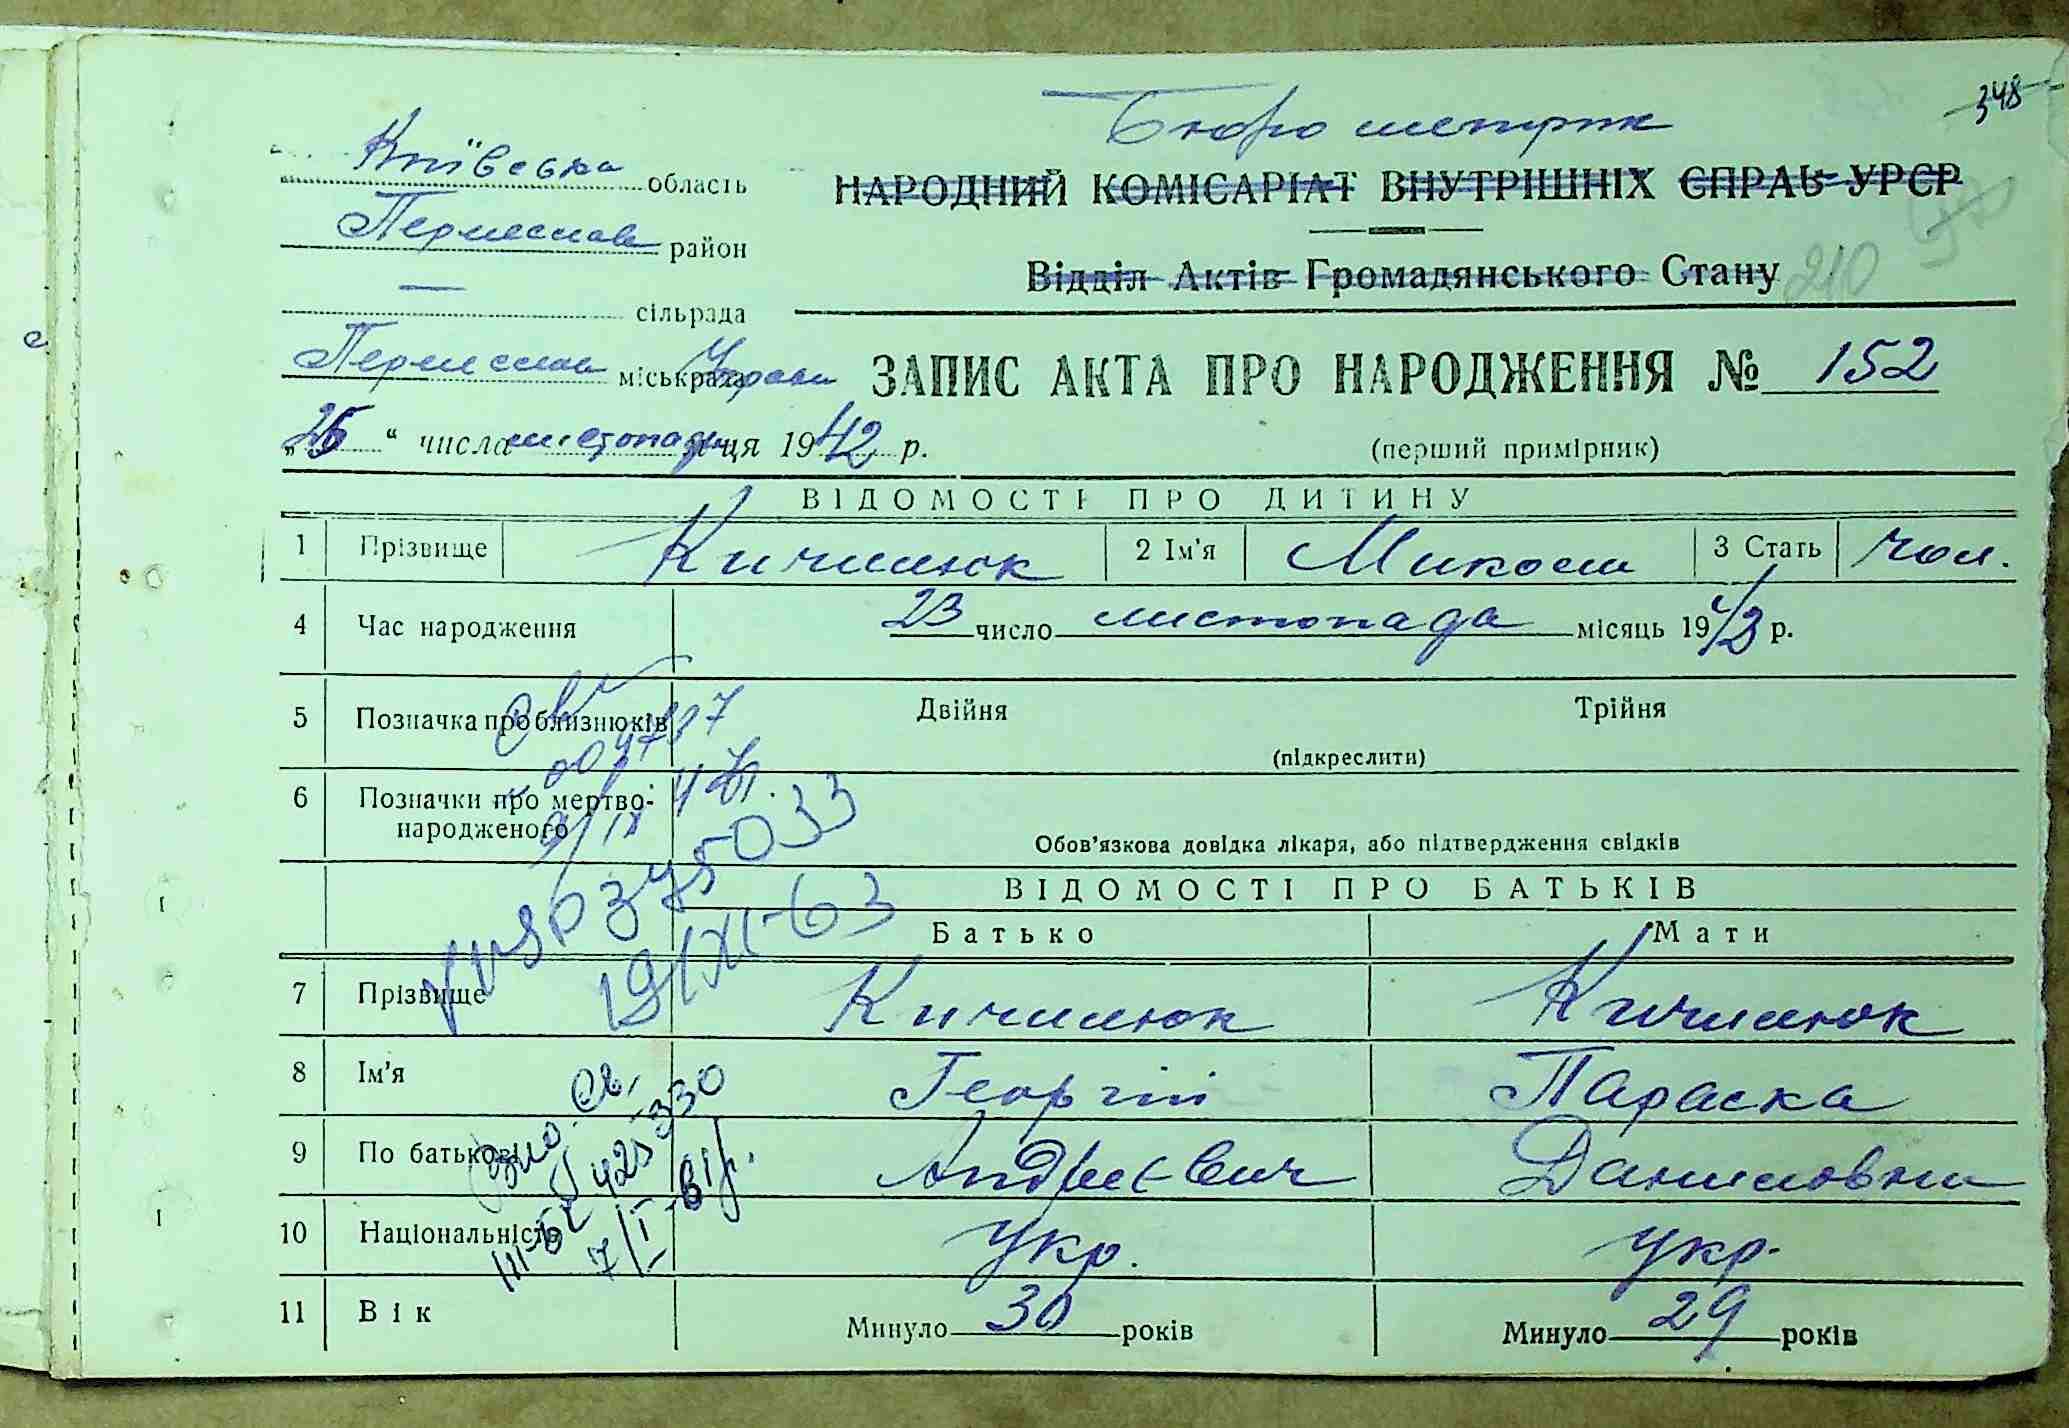 348
Бюро метрик
Київська область
НАРОДНИЙ КОМІСАРІАТ ВНУТРІШНІХ СПРАВ УРСР
Переяслав район
Відділ Актів Громадянського Стану
210
— сільрада
Переяслав міськрада Управа
ЗАПИС АКТА ПРО НАРОДЖЕННЯ № 152
„25“ числа листопада м-ця 1942 р.
(перший примірник)
ВІДОМОСТІ ПРО ДИТИНУ
1 Прізвище Кичилюк 2 Ім'я Микола 3 Стать чол.
4 Час народження 23 число листопада місяць 1942 р.
5 Позначка про близнюків Двійня Трійня
(підкреслити)
6 Позначки про мертво-
народженого
Обов'язкова довідка лікаря, або підтвердження свідків
ВІДОМОСТІ ПРО БАТЬКІВ
Батько Мати
19/XII-63
7 Прізвище Кичилюк Кичилюк
8 Ім'я Георгій Параска
9 По батькові Андреевич Даниловна
10 Національність укр. укр.
11 Вік Минуло 30 років Минуло 29 років